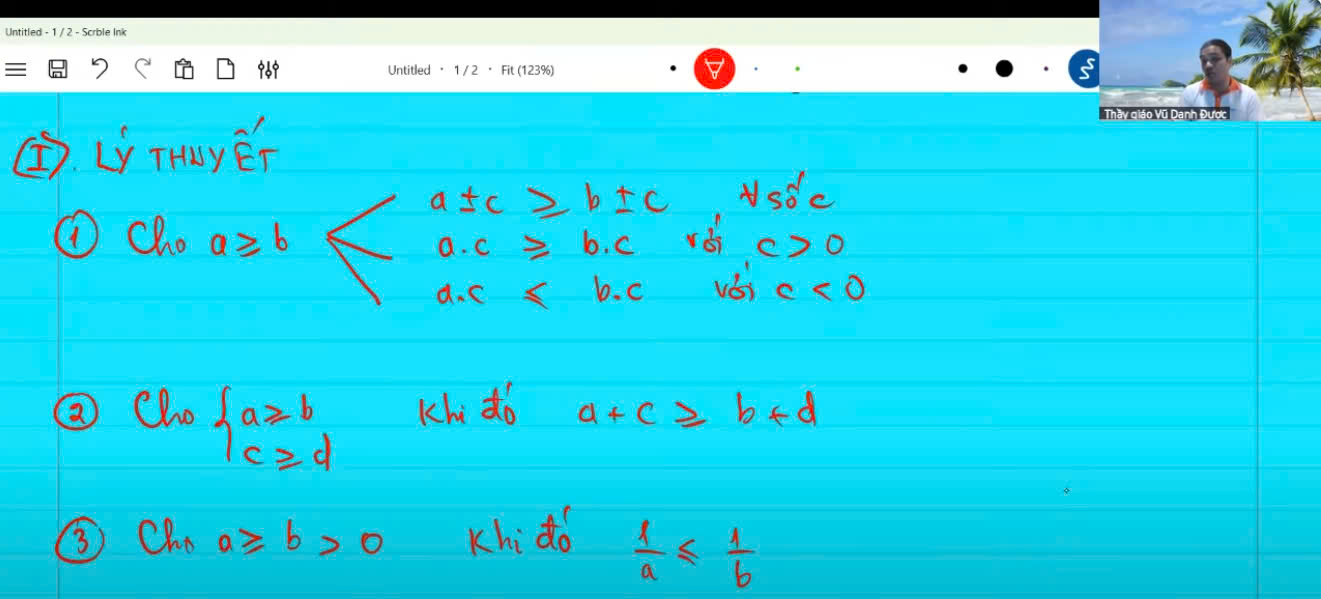 Untitled - 1 / 2 - Scrble Ink
Untitled · 1 / 2 · Fit (123%)
Thầy giáo Vũ Danh Được
I. LÝ THUYẾT
1 Cho a ≥ b
a ± c ≥ b ± c ∀ số c
a.c ≥ b.c với c > 0
a.c ≤ b.c với c < 0
2 Cho { a ≥ b Khi đó a + c ≥ b + d
c ≥ d
3 Cho a ≥ b > 0 Khi đó 1/a ≤ 1/b